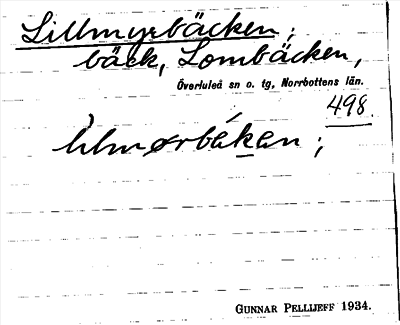 Lillmyrbäcken;
bäck, Lombäcken,
Överluleå sn o. tg, Norrbottens län.
498.
GUNNAR PELLIJEFF 1934.